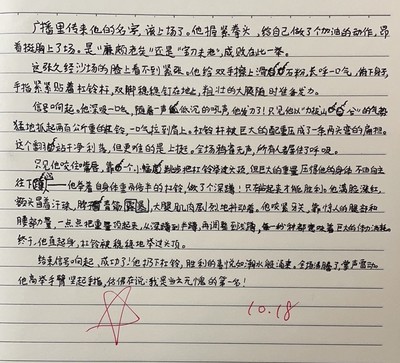 广播里传来他的名字，该上场了。他握紧拳头，给自己做了个加油的动作，昂
着挺胸上了场。是“廉颇老矣”还是“宝刀未老”，成败在此一举。
这张久经沙场的脸上看不到紧张。他给双手擦上滑石粉，长呼一口气，俯下身子，
手指紧紧贴着杠铃杆，双脚稳稳钉在地上，粗壮的大腿随时准备发力。
信号响起。他深吸一口气，随着一声低沉的吼声，他发力了！只见他以“力拔山兮”的气势
猛地抓起两百公斤重的杠铃，一口气拉到肩上。杠铃杆被巨大的配重压成了一条两头弯的扁担。
这个动作干净利落，但更难的是上挺。全场鸦雀无声，所有人都屏住了呼吸。
只见他咬住嘴唇，靠一个小幅跳步把杠铃举过头顶，但巨大的重量压得他的身体不由自主
往下——他举着自身体重两倍半的杠铃，做了个深蹲！只有站起才能胜利。他满脸通红，
额头冒着汗珠，脖 青筋 ，大腿肌肉剧烈地抖动着。他咬紧牙关，靠惊人的腿部和
腰部力量，一点点把重量顶起来，从深蹲到半蹲，再调整到浅蹲，每一秒钟都忍受着巨大的体力消耗。
终于，他直起身，杠铃被稳稳地举过头顶。
结束信号响起，成功了！他扔下杠铃，胜利的喜悦如潮水般涌来。全场沸腾了，掌声雷动。
他高举手臂竖起手指，仿佛在说：我是当之无愧的第一名！
10.18